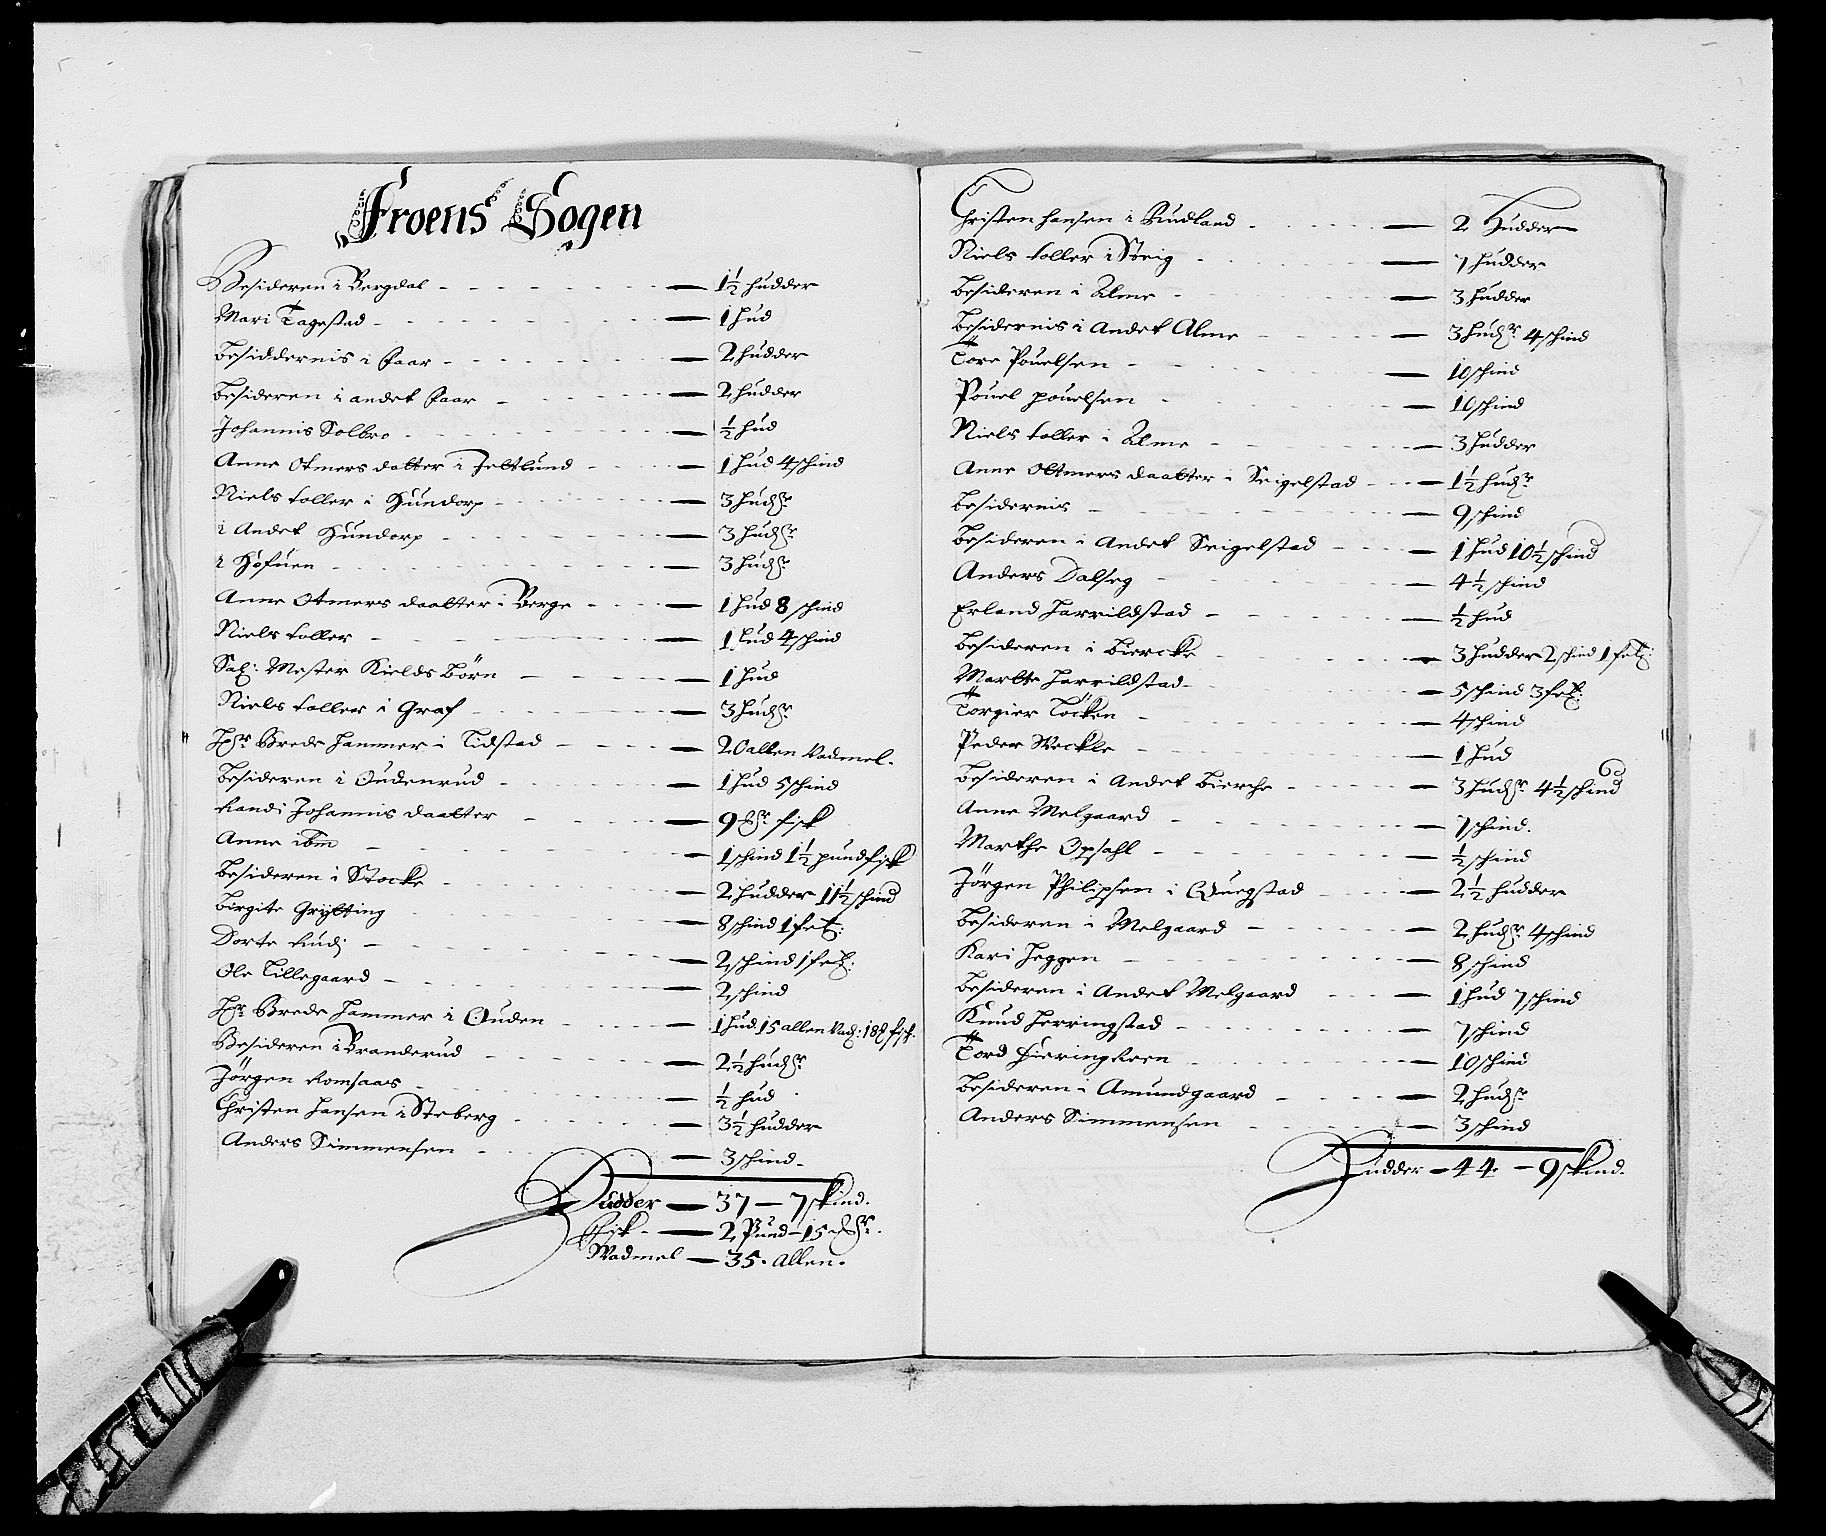 Froens Sogen
Besideren i Bergdal - 1½ hudder
Mari Tagestad - 1 hud
Besiddernis i Faar - 2 hudder
Besideren i andet Faar - 2 hudder
Johannis Solbro - ½ hud
Anne Otmers datter i Jeltlund - 1 hud 4 schind
Niels toller i Hundorp - 3 hudr
i Andet Hundorp - 3 hudr
i Hofuen - 3 hudr
Anne Otmers daatter i Berge - 1 hud 8 schind
Niels toller - 1 hud 4 schind
Sal: Mester Kields Börn - 1 hud
Niels toller i Graf - 3 hudr
Hr Brede Hammer i Tidstad - 20 allen Vadmel.
Besideren i Oudenrud - 1 hud 5 schind
Randi Johannis daatter - 9 mr fisk
Anne ibm - 1 schind 1½ pund fisk
Besideren i Stocke - 2 hudder 11½ schind
Birgite Grytting - 8 schind 1 fel:
Dorte Rudj - 2 schind 1 fel:
Ole Lillegaard - 2 schind
Hr Brede Hammer i Ouden - 1 hud 15 allen Vad: 18 fisk.
Besideren i Branderud - 2½ hudr
Jörgen Romsaas - ½ hud
Christen Hansen i Steberg - 3½ hudder
Anders Simmensen - 3 schind.
Hudder - 37 - 7 skind.
Fisk - 2 Pund - 15 mr.
Wadmel - 35. Allen.
Christen Hansen i Rudland - 2 Hudder
Niels toller i Steig - 7 hudder
Besideren i Alme - 3 hudder
Besidernis i Andet Alme - 3 hudr 4 schind
Tore Pouelsen - 10 schind
Pouel pouelsen - 10 schind
Niels toller i Alme - 3 hudder
Anne Oltmers daatter i Seigelstad - 1½ hudr
Besidernis - 9 schind
Besideren i Andet Seigelstad - 1 hud 10½ schind
Anders Dalseg - 4½ schind
Erland Harrildstad - ½ hud
Besideren i Biercke - 3 hudder 2 schind 1 fel:
Marlte Harrildstad - 5 schind 3 fel:
Torgier Töcken - 4 schind
Peder Weckle - 1 hud
Besideren i Andet Bierche - 3 hudr 4½ schind
Anne Melgaard - 7 schind.
Marthe Opsahl - ½ schind
Jörgen Philipsen i Quegstad - 2½ hudder
Besideren i Melgaard - 2 hudr 4 schind
Kari Heggen - 8 schind
Besideren i Andet Melgaard - 1 hud 7 schind
Knud Herringstad - 7 schind
Tord - 10 schind
Besideren i Amundgaard - 2 hudr
Anders Simmensen - 3 schind
Hudder - 44 - 9 skind.